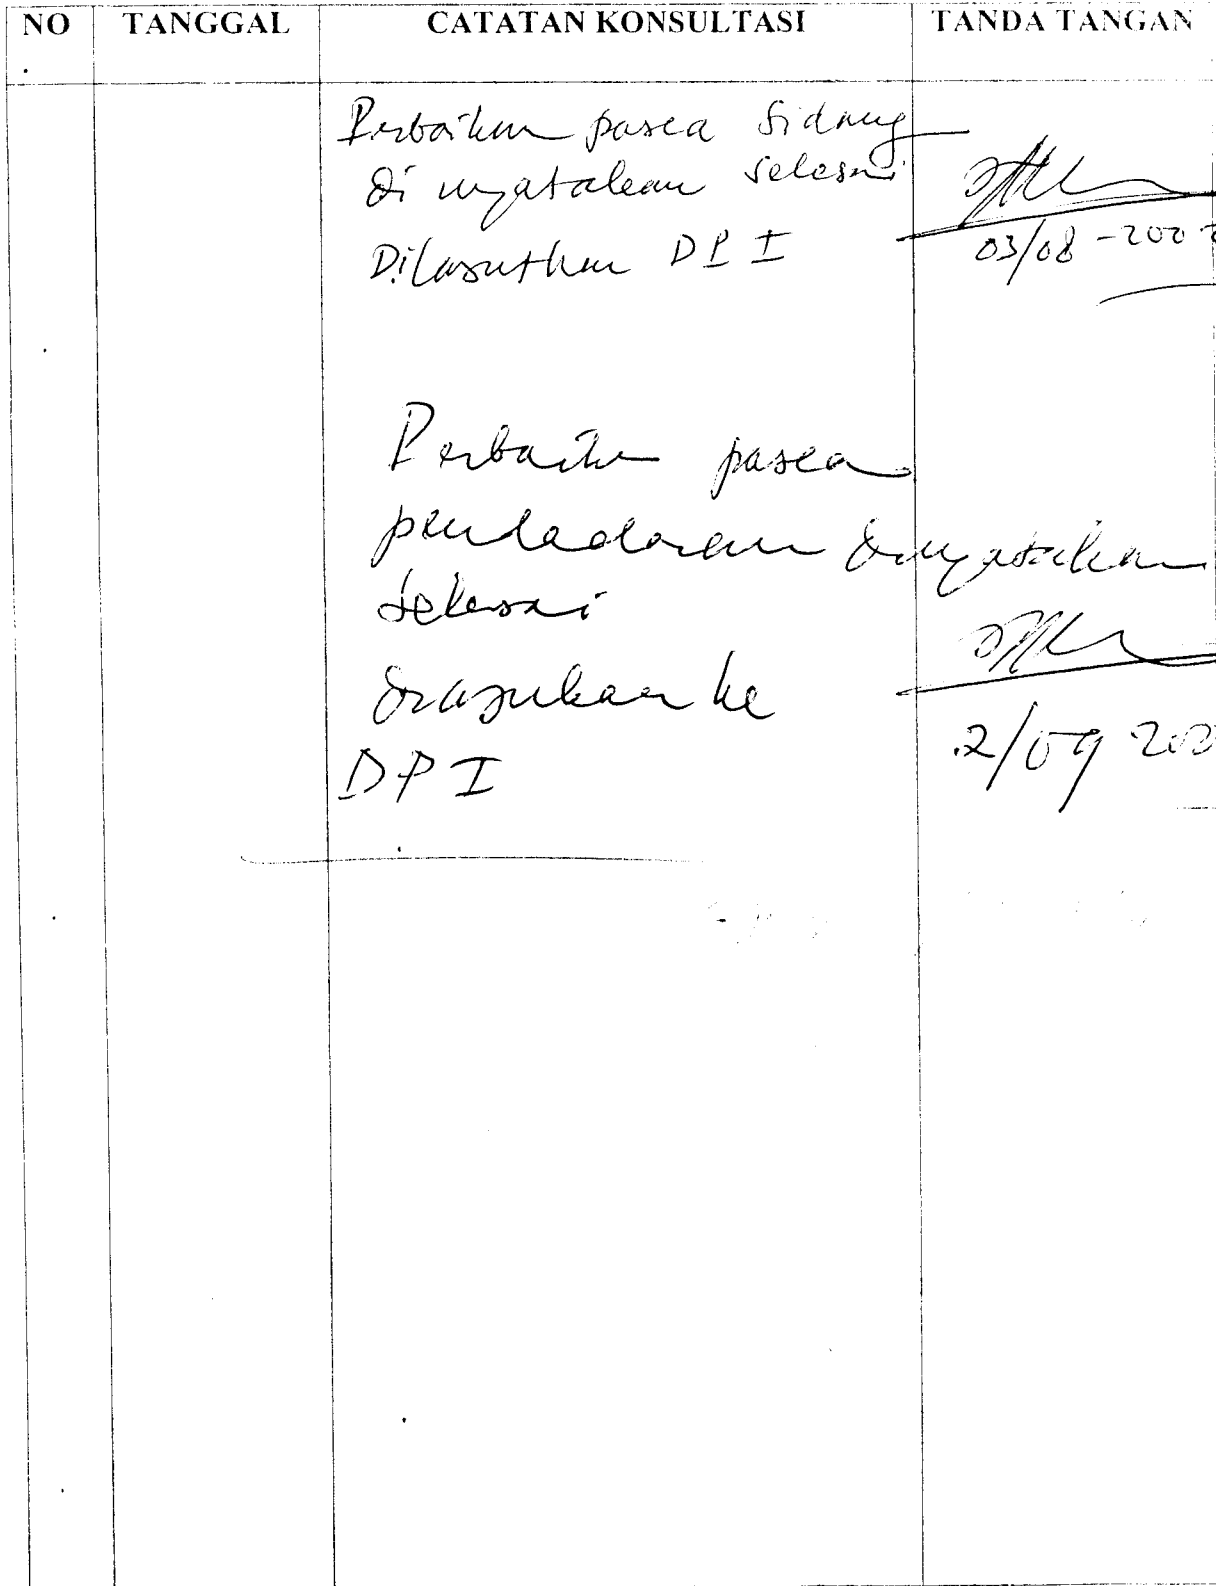 NO TANGGAL CATATAN KONSULTASI TANDA TANGAN
Perbaikan pasca Sidang
di nyatakan selesai
Dilanjutkan DP I
03/08 - 200
Perbaikan pasca
pendadaran dinyatakan
selesai
diajukan ke
DP I
2/09 200